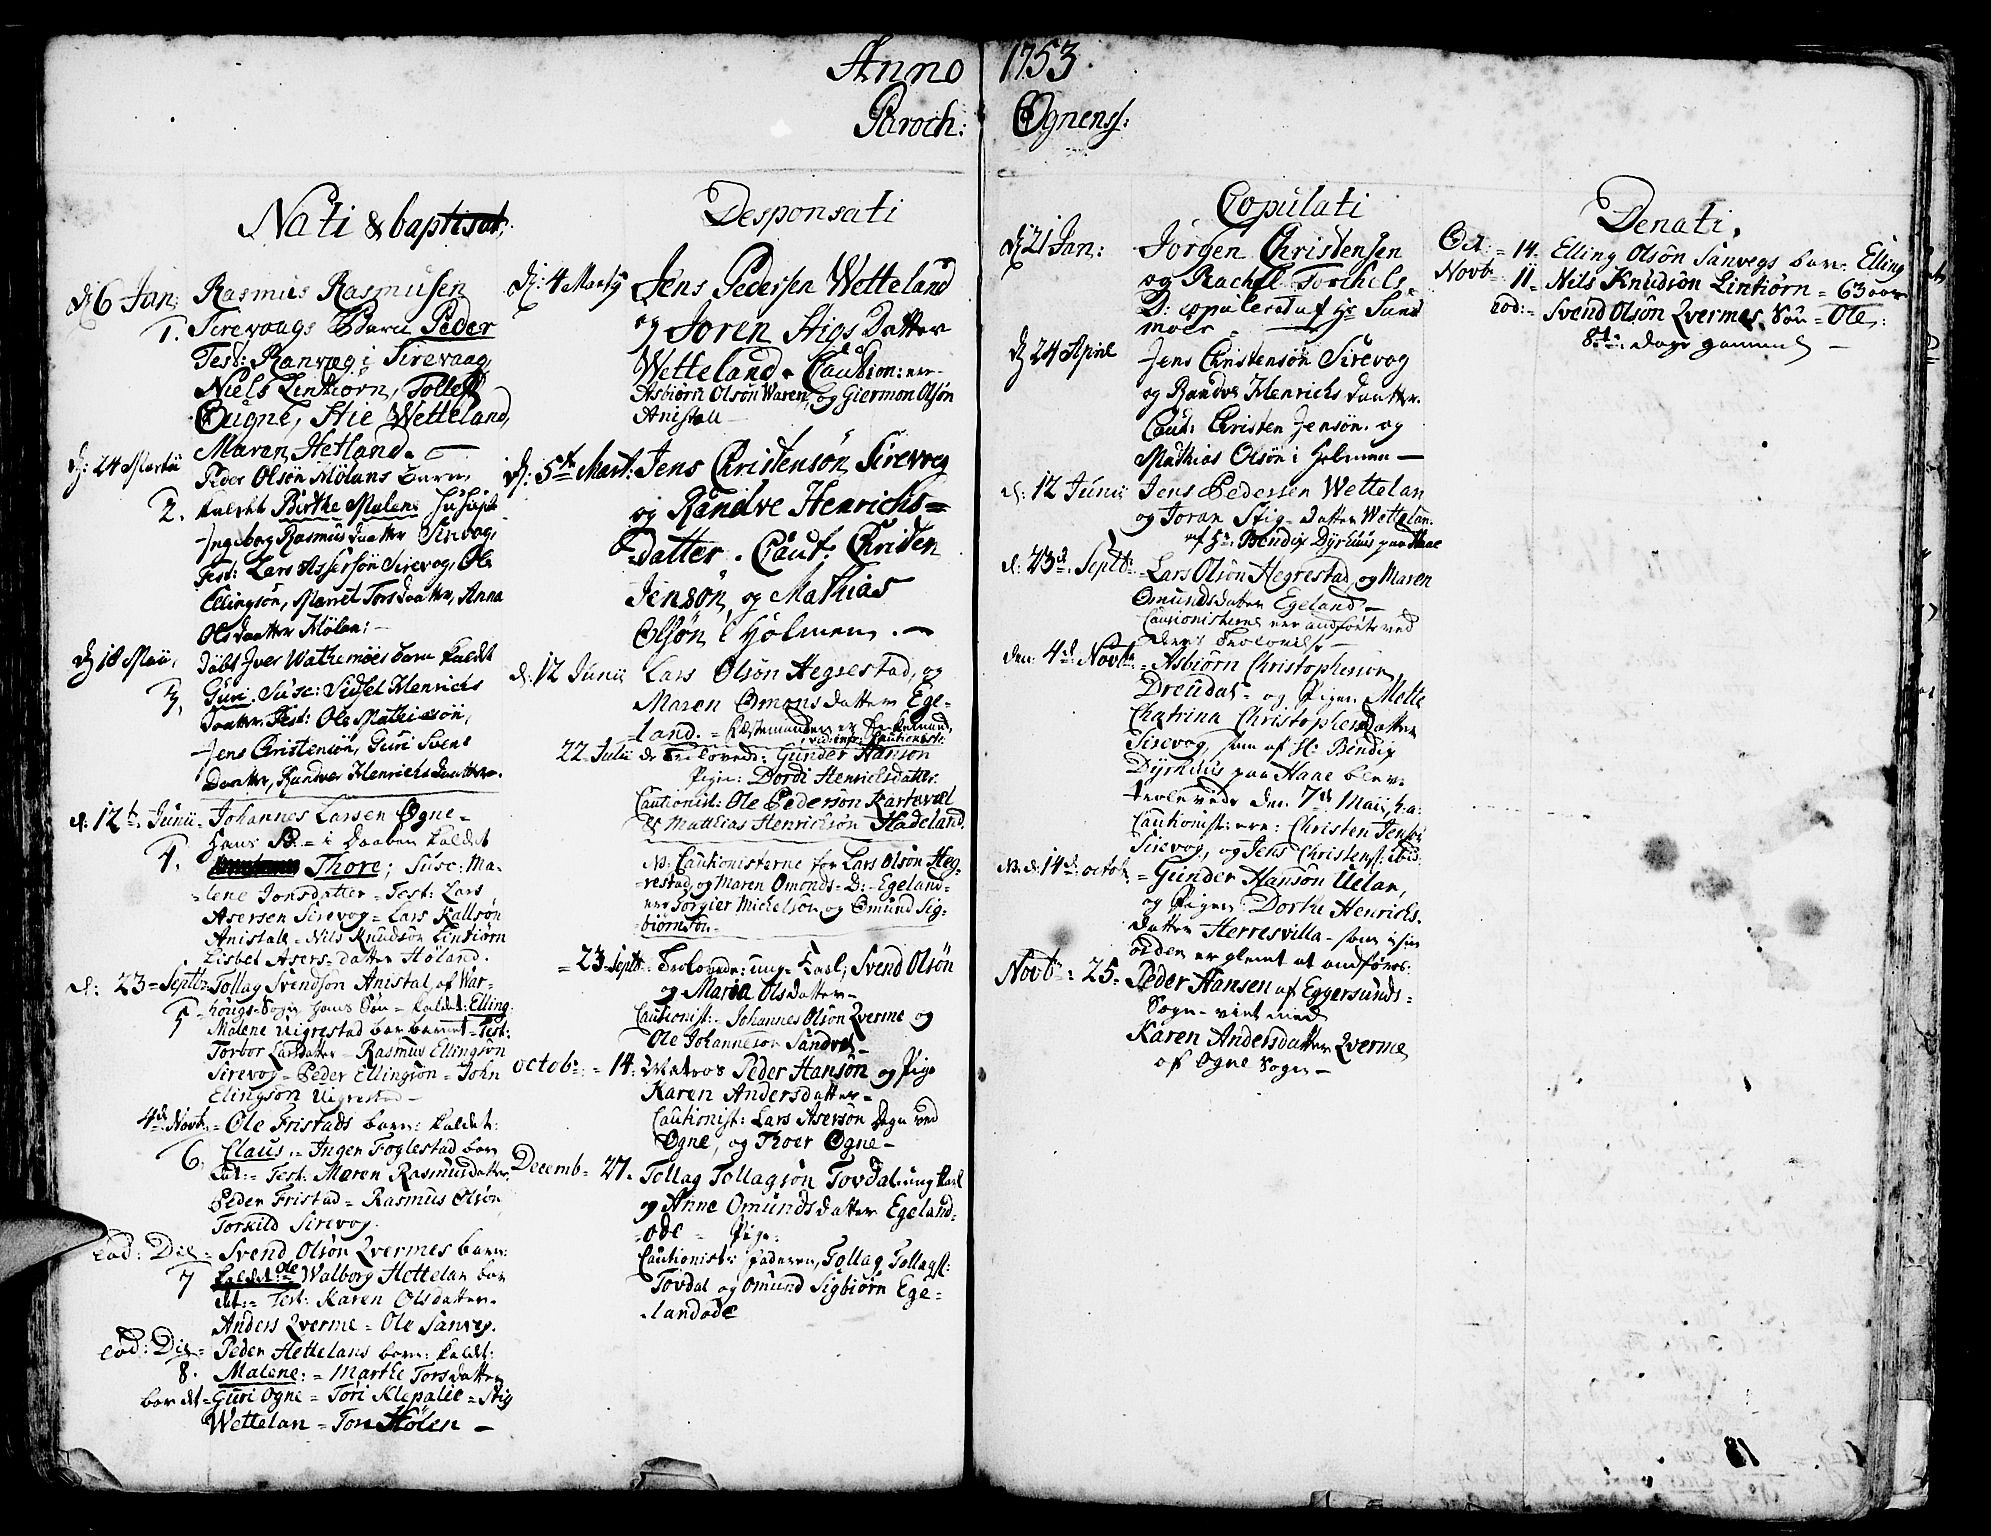 Anno 1753
Paroch: Ognens:
Nati & baptisat:
d. 6 Jan: Rasmus Rasmusen
1. Sirevaags Barn Peder
Test: Ranvæg i Sirevaag,
Niels Lintiørn, Tollef
Ougne, Stie Wetteland,
Maren Hetland.
d. 24 Martii Peder Olsön Mölans barn,
2. kaldet Birthe Malene Suscept.
Ingebor Rasmus daatter Sirvog,
Test: Lars Assersön Sirevog, Ole
Ellingsön, Marret Tors daatter, Anna
Ols daatter Mölen:
d. 18 Maii, döbt Iver Wathemöes barn kaldt
3. Guri. Susc: Sidsel Henrichs
daatter. Test: Ole Mathiasön,
Jens Christensön, Guri Svens
Daatter, Randver Henrichs daatter.
d. 12t. Junii. Johannes Larsen Ogne
hans B: i daaben kaldet
4. Thore; Susc: Ma-
lene Jonsdatter - Test: Lars
Asersen Sirevog = Lars Kallsön
Anistall = Nils Knudsön Lintiörn
Lisbet Asers datter Höland.
d: 23 Septb: Tollag Svendsön Anistal, af War-
5 hougs Sogn hans Sön = kaldet: Elling
Malene Uigrestad bar barnet = Test:
Torbor Larsdatter = Rasmus Ellingsön
Sirevog = Peder Ellingsön = John
Elingsön Uigrestad
4de Novb: = Ole Fristads barn: kaldet:
6. Claus = Inger Foglestad bar
det: = Test: Maren Rasmusdatter,
Peder Fristad = Rasmus Olsön
Torkild Sirevog.
Eod: Die = Svend Olsön Qvermes barn:
7 kaldet: Ole Walborg Hettelan bar
det: = Test: Karen Olsdatter.
Anders Qverme = Ole Sanveg.
Eod: Die = Peder Hettelans barn: kaldt:
8. Malene: = Marthe Torsdatter
bar det = Guri Ogne = Tori Klepalie = Stig
Wettelan = Tor Hölen
Desponsati
d: 4 Martij Jens Pedersen Wetteland
og Joren Stigs Datter
Wetteland. Caution: ere
Asbiörn Olsön Waren, og Giermon Olsön
Anistall
d: 5te Mart: Jens Christensön Sirevog
og Randve Henrichs=
datter. Caut: Christen
Jensön, og Mathias
Olsön i Holmen.
d: 12 Junii Lars Olsön Hegrestad, og
Maren Omons datter Ege-
land.
22 Julii de Trolovede: Gunder Hanson
Pige: Dordi Henrichsdatter.
Cautionist: Ole Pederson Kartevæl
& Matthias Henrichsön Hadeland.
NB: Cautionisterne for Lars Olsön Heg-
restad, og Maren Omonds = D: = Egeland =
ere Torgier Michelsön, og Omund Sig-
biörnsön.
= 23 Septb: Trolovede: ung = Karl; Svend Olsön
og Maria Olsdatter
Cautionist: = Johannes Olsön Qverme og
Ole Johanneson Sandvet
octob: = 14: Matros Peder Hansön og Pige
Karen Andersdatter
Cautionist: Lars Aserson Degn ved
Ogne, og Thoer Ogne
Decemb = 27. Tollag Tollagsön Tovdal ung karl
og Anne Omunds datter Egeland-
ode Pige:
Cautionister faderen, Tollag Tollags:
Tovdal og Omund Sigbiörn Ege-
landode
Copulati
d. 21 Jan: Jörgen Christensen
og Rachel Torkels
D: copuleret af Hr Sand
moer
d. 24 April Jens Christensön Sirevog
og Randve Henrichs daatter.
Caut: Christen Jensön. og
Mathias Olsön i Holmen
d. 12 Junii Jens Pedersen Wettelan
og Joran Stig datter Wettelan.
af Hr. Bendix Dyrhuus paa Haae
d: 23d. Septb: Lars Olsön Hegrestad, og Maren
Omundsdatter Egeland
Cautionisterne ere andförte ved
deres Trolovelse
den: 4de Novb: = Asbiörn Christophersen
Dreudal = og Pigen Mette
Chatrina Christophersdatter
Sirevog, som af H: Bendix
Dyrhuus paa Haae bleve
trolovede den. 7de Maii h: a:
Cautionist: ere: Christen Jensön
Sirevog, og Jens Christens: ibid:
NB. d. 14de octob: = Gunder Hansön Uelan,
og Pigen Dorthe Henrichs
datter Herresvilla = som i sin
orden er glemt at andföres:
Novb: 25 = Peder Hansen af Eggersunds =
Sogn = viet med
Karen Andersdatter Qverme
af Ogne Sogn
Denati.
Oct: = 14. Elling Olsön Sanvegs barn: Elling
Novb: 11 = Nils Knudsön Lintiörn = 63 aar
eod: = Svend Olsön Qvermes Sön = Ole:
8te dage gammel
18